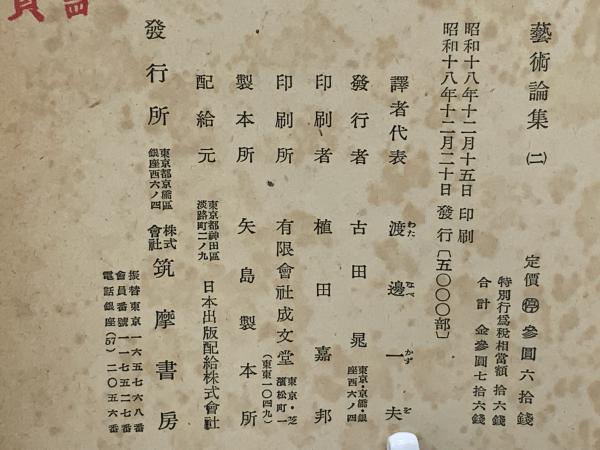 藝術論集 (二)
定價 ㊞ 參圓六拾錢
特別行爲稅相當額 拾六錢
合計 金參圓七拾六錢
昭和十八年十二月十五日 印刷
昭和十八年十二月二十日 發行〔五〇〇〇部〕
譯者代表 渡邊一夫
わた なべ かず を
發行者 古田晁
東京・京橋・銀
座西六ノ四
印刷者 植田嘉邦
印刷所 有限會社成文堂
東京・芝
濱松町一
(東東一〇四九)
製本所 矢島製本所
配給元
東京都神田區
淡路町二ノ九
日本出版配給株式會社
發行所
東京都京橋區
銀座西六ノ四
株式
會社
筑摩書房
振替東京一六五七六八番
會員番號一一七五二七番
電話銀座(57)二〇五六番